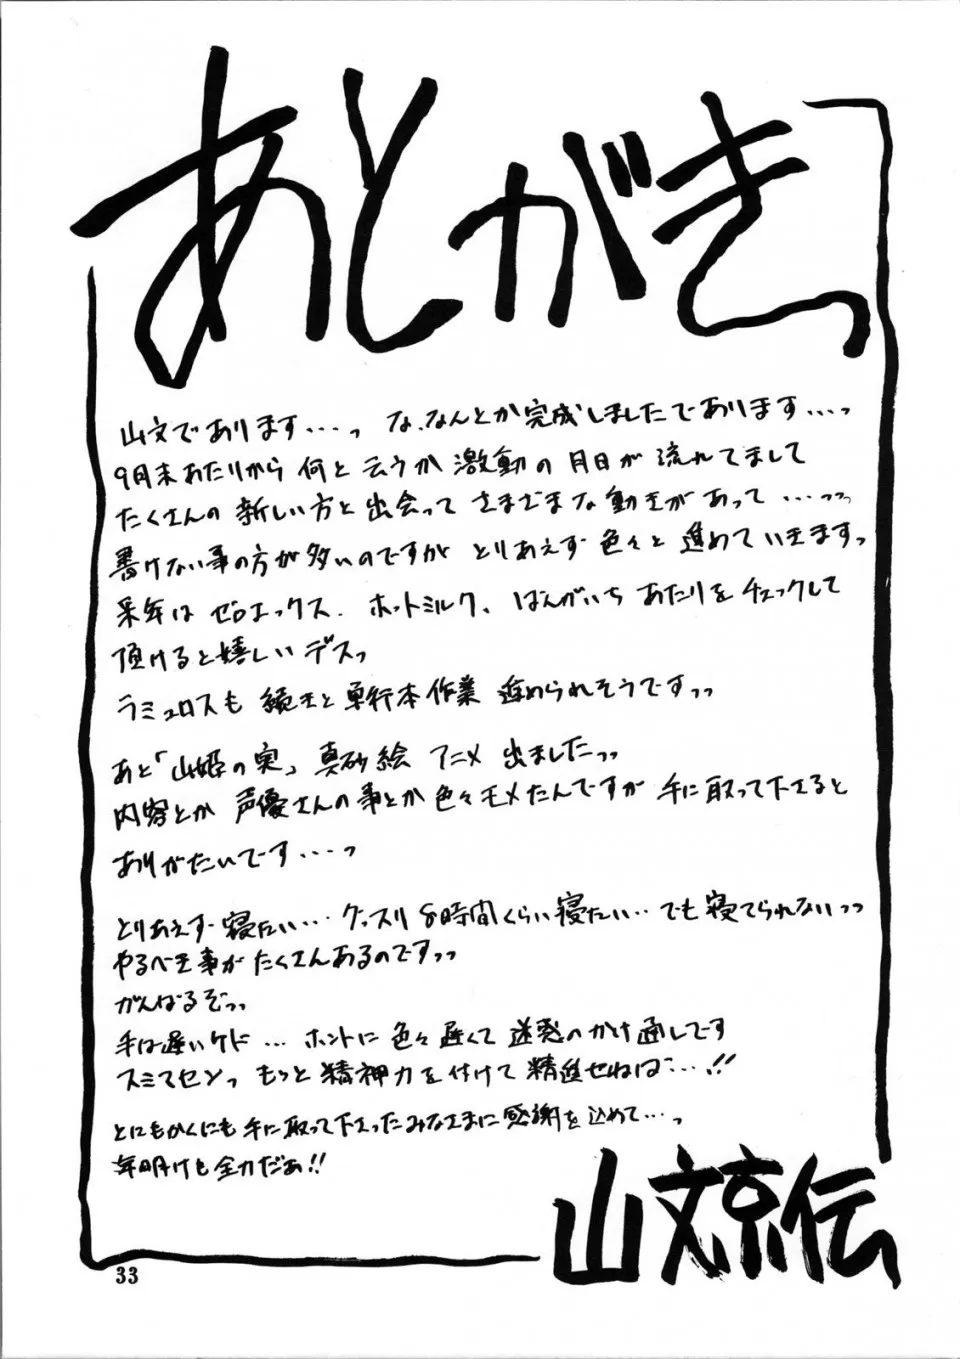 あとがきっ
山文であります…っ な、なんとか完成しましたであります…っ
9月末あたりから 何と云うか 激動の 月日が 流れてまして
たくさんの 新しい方と 出会って さまざまな 動きが あって …っっ
書けない事の方が多いのですが とりあえず 色々と 進めていきますっ
来年は ゼロエックス、ホットミルク、ばんがいち あたりを チェックして
頂けると嬉しい デスっ
ラミュロスも 続きと 単行本作業 進められそうですっっ
あと「山姫の実」真砂絵 アニメ 出ましたっっ
内容とか 声優さんの事とか 色々モメたんですが 手に取って下さると
ありがたいです…っ
とりあえず 寝たい… グッスリ 8時間くらい寝たい… でも 寝てられないっっ
やるべき事が たくさんあるのですっっ
がんばるぞっっ
手は遅いケド … ホントに 色々 遅くて 迷惑の かけ通しです
スミマセンっ もっと 精神力を付けて 精進せねば…!!
とにもかくにも 手に取って下さったみなさまに 感謝を 込めて…っ
年明けも 全力だぁ!!
山文京伝
33